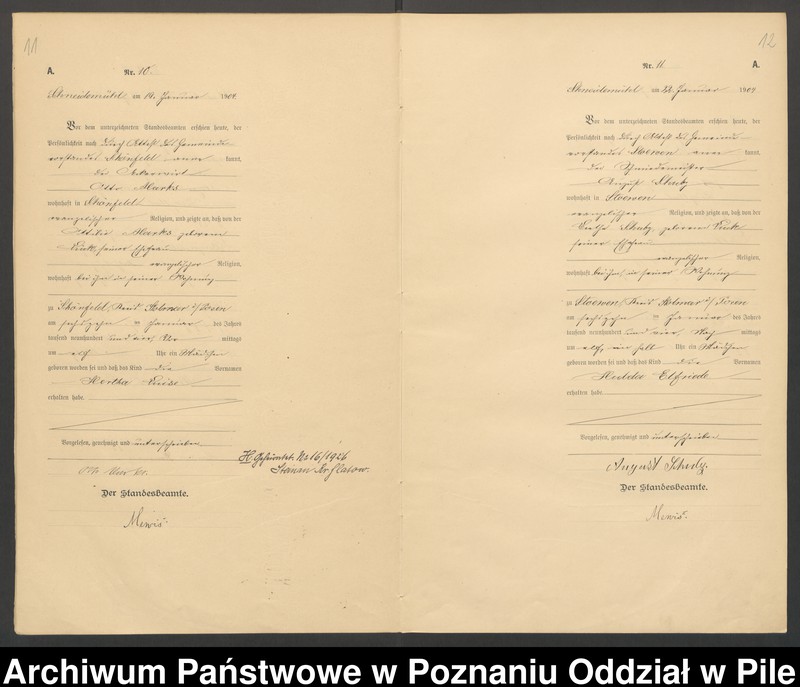 11
A.
Nr. 10
Schneidemühl am 19. Januar 1904.
Vor dem unterzeichneten Standesbeamten erschien heute, der
Persönlichkeit nach durch Attest des Gemeinde-
vorstandes Schönfeld anerkannt,
der Ackerwirt
Otto Marks
wohnhaft in Schönfeld
evangelischer Religion, und zeigte an, daß von der
Marks geborene
seiner Ehefrau
evangelischer Religion,
wohnhaft bei ihm in seiner Wohnung
zu Schönfeld, Kreis Kolmar i/Posen
am sechszehn ten Januar des Jahres
tausend neunhundert und vier, mittags
um elf Uhr ein Mädchen
geboren worden sei und daß das Kind die Vornamen
Hertha Luise
erhalten habe.
Vorgelesen, genehmigt und unterschrieben
Otto Marks.
Der Standesbeamte.
Mewis
H Geheiratet. No 16/1926
Standesamt Kr. Flatow.
12
Nr. 11
A.
Schneidemühl am Januar 1904
Vor dem unterzeichneten Standesbeamten erschien heute, der
Persönlichkeit nach durch Attest des Gemeinde-
vorstandes Stoewen anerkannt,
der Schmiedemeister
August
wohnhaft in Stoewen
evangelischer Religion, und zeigte an, daß von der
geborene
seiner Ehefrau
evangelischer Religion,
wohnhaft bei ihm in seiner Wohnung
zu Stoewen, Kreis Kolmar i/Posen
am sechszehn ten Januar des Jahres
tausend neunhundert und vier, Nach mittags
um elf, ein halb Uhr ein Mädchen
geboren worden sei und daß das Kind die Vornamen
Elfriede
erhalten habe.
Vorgelesen, genehmigt und unterschrieben
August
Der Standesbeamte.
Mewis.
Archiwum Państwowe w Poznaniu Oddział w Pile